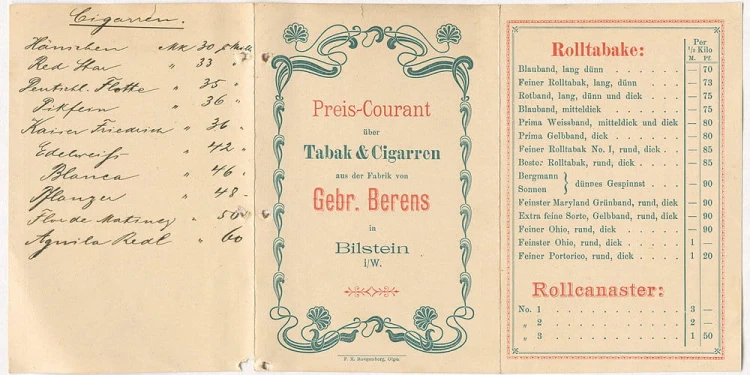 Cigarren.
Hänschen Mk 30 p Mille
Red Star " 33 "
Deutschl. Flotte " 35 "
Pikfein " 36 "
Kaiser Friedrich " 36 "
Edelweiß " 42 "
Blanca " 46 "
Pflanzer " 48 -
Flor de " 50
Aguila Real " 60
Preis-Courant
über
Tabak & Cigarren
aus der Fabrik von
Gebr. Berens
in
Bilstein
i/W.
Olpe.
Rolltabake:
Per ½ Kilo
M. Pf.
Blauband, lang dünn . . . . . — 70
Feiner Rolltabak, lang, dünn . . — 73
Rotband, lang, dünn und dick . . — 75
Blauband, mitteldick . . . . . — 75
Prima Weissband, mitteldick und dick — 80
Prima Gelbband, dick . . . . . — 80
Feiner Rolltabak No. I, rund, dick . . — 85
Bester Rolltabak, rund, dick . . . — 85
Bergmann
Sonnen } dünnes Gespinnst . . . — 90
Feinster Maryland Grünband, rund, dick — 90
Extra feine Sorte, Gelbband, rund, dick — 90
Feiner Ohio, rund, dick . . . . — 90
Feinster Ohio, rund, dick . . . . 1 —
Feiner Portorico, rund, dick . . . 1 20
Rollcanaster:
No. 1 . . . . . . . . . 3 —
„ 2 . . . . . . . . . 2 —
„ 3 . . . . . . . . . 1 50